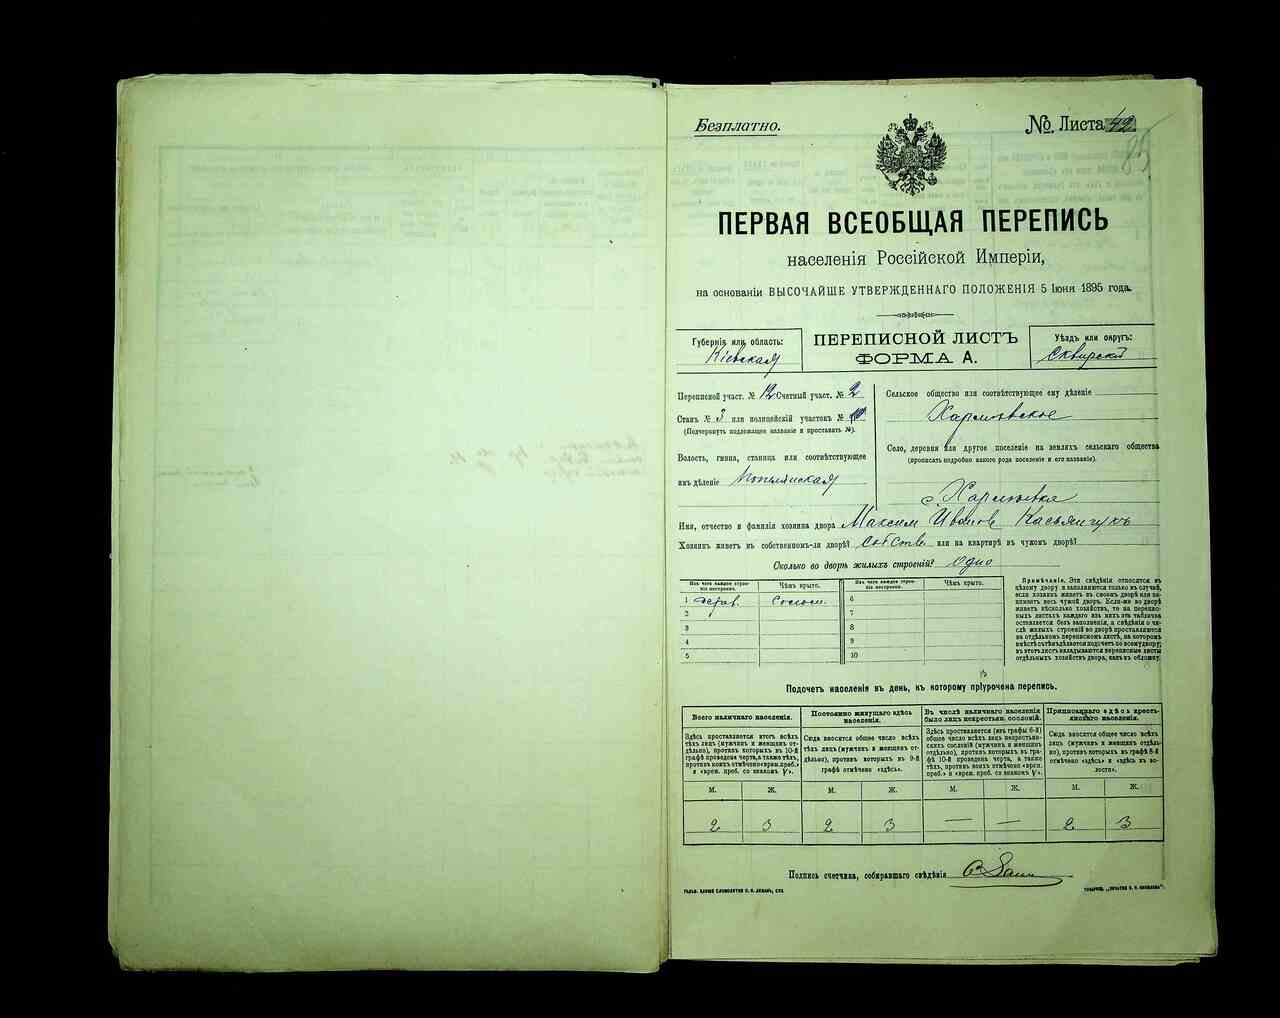 Безплатно.
№ Листа 42.
85
ПЕРВАЯ ВСЕОБЩАЯ ПЕРЕПИСЬ
населенія Россійской Имперіи,
на основаніи ВЫСОЧАЙШЕ УТВЕРЖДЕННАГО ПОЛОЖЕНІЯ 5 Іюня 1895 года.
Губернія или область:
Кіевская
ПЕРЕПИСНОЙ ЛИСТЪ
ФОРМА А.
Уѣздъ или округъ:
Сквирскій
Переписной участ. № 12 Счетный участ. № 2
Станъ № 3 или полицейскій участокъ №
(Подчеркнуть подлежащее названіе и проставить №).
Волость, гмина, станица или соотвѣтствующее
имъ дѣленіе
Сельское общество или соотвѣтствующее ему дѣленіе
Село, деревня или другое поселеніе на земляхъ сельскаго общества
(прописать подробно какого рода поселеніе и его названіе).
с.
Имя, отчество и фамилія хозяина двора Максим Иванов Касьянчукъ
Хозяинъ живетъ въ собственномъ-ли дворѣ? собств или на квартирѣ въ чужомъ дворѣ?
Сколько во дворѣ жилыхъ строеній? одно
Изъ чего каждое строеніе построено.
Чѣмъ крыто.
Изъ чего каждое строеніе построено.
Чѣмъ крыто.
1 дерев. солом.
2
3
4
5
6
7
8
9
10
Примѣчаніе. Эти свѣдѣнія относятся къ
цѣлому двору и заполняются только въ случаѣ,
если хозяинъ живетъ въ своемъ дворѣ или занимаетъ
весь чужой дворъ. Если-же во дворѣ
живетъ нѣсколько хозяйствъ, то на переписныхъ
листахъ каждаго изъ нихъ эта табличка
оставляется безъ заполненія, а свѣдѣнія о числѣ
жилыхъ строеній во дворѣ проставляются
на отдѣльномъ переписномъ листѣ, на которомъ
вмѣстѣ съ тѣмъ дѣлается подсчетъ по всему двору;
въ этотъ листъ вкладываются переписные листы
отдѣльныхъ хозяйствъ двора, какъ въ обложку.
Подсчетъ населенія въ день, къ которому пріурочена перепись.
Всего наличнаго населенія.
Постоянно живущаго здѣсь населенія.
Въ числѣ наличнаго населенія было лицъ некрестьян. сословій.
Приписаннаго здѣсь крестьянскаго населенія.
Здѣсь проставляется итогъ всѣхъ тѣхъ лицъ (мужчинъ и женщинъ отдѣльно), противъ которыхъ въ 10-й графѣ проведена черта, а также тѣхъ, противъ коихъ отмѣчено «врем. преб.» и «врем. преб. со знакомъ V».
Сюда вносится общее число всѣхъ тѣхъ лицъ (мужчинъ и женщинъ отдѣльно), противъ которыхъ въ 9-й графѣ отмѣчено «здѣсь».
Здѣсь проставляется (изъ графы 6-й) общее число всѣхъ лицъ некрестьянскихъ сословій (мужчинъ и женщинъ отдѣльно), противъ которыхъ въ графѣ 10-й проведена черта, а также тѣхъ, противъ коихъ отмѣчено «врем. преб.» и «врем. преб. со знакомъ V».
Сюда вносится общее число всѣхъ лицъ (мужчинъ и женщинъ отдѣльно), противъ которыхъ въ графѣ 8-й отмѣчено «здѣсь» и «здѣсь въ волости».
М. Ж. М. Ж. М. Ж. М. Ж.
2 3 2 3 — — 2 3
Подпись счетчика, собиравшаго свѣдѣнія